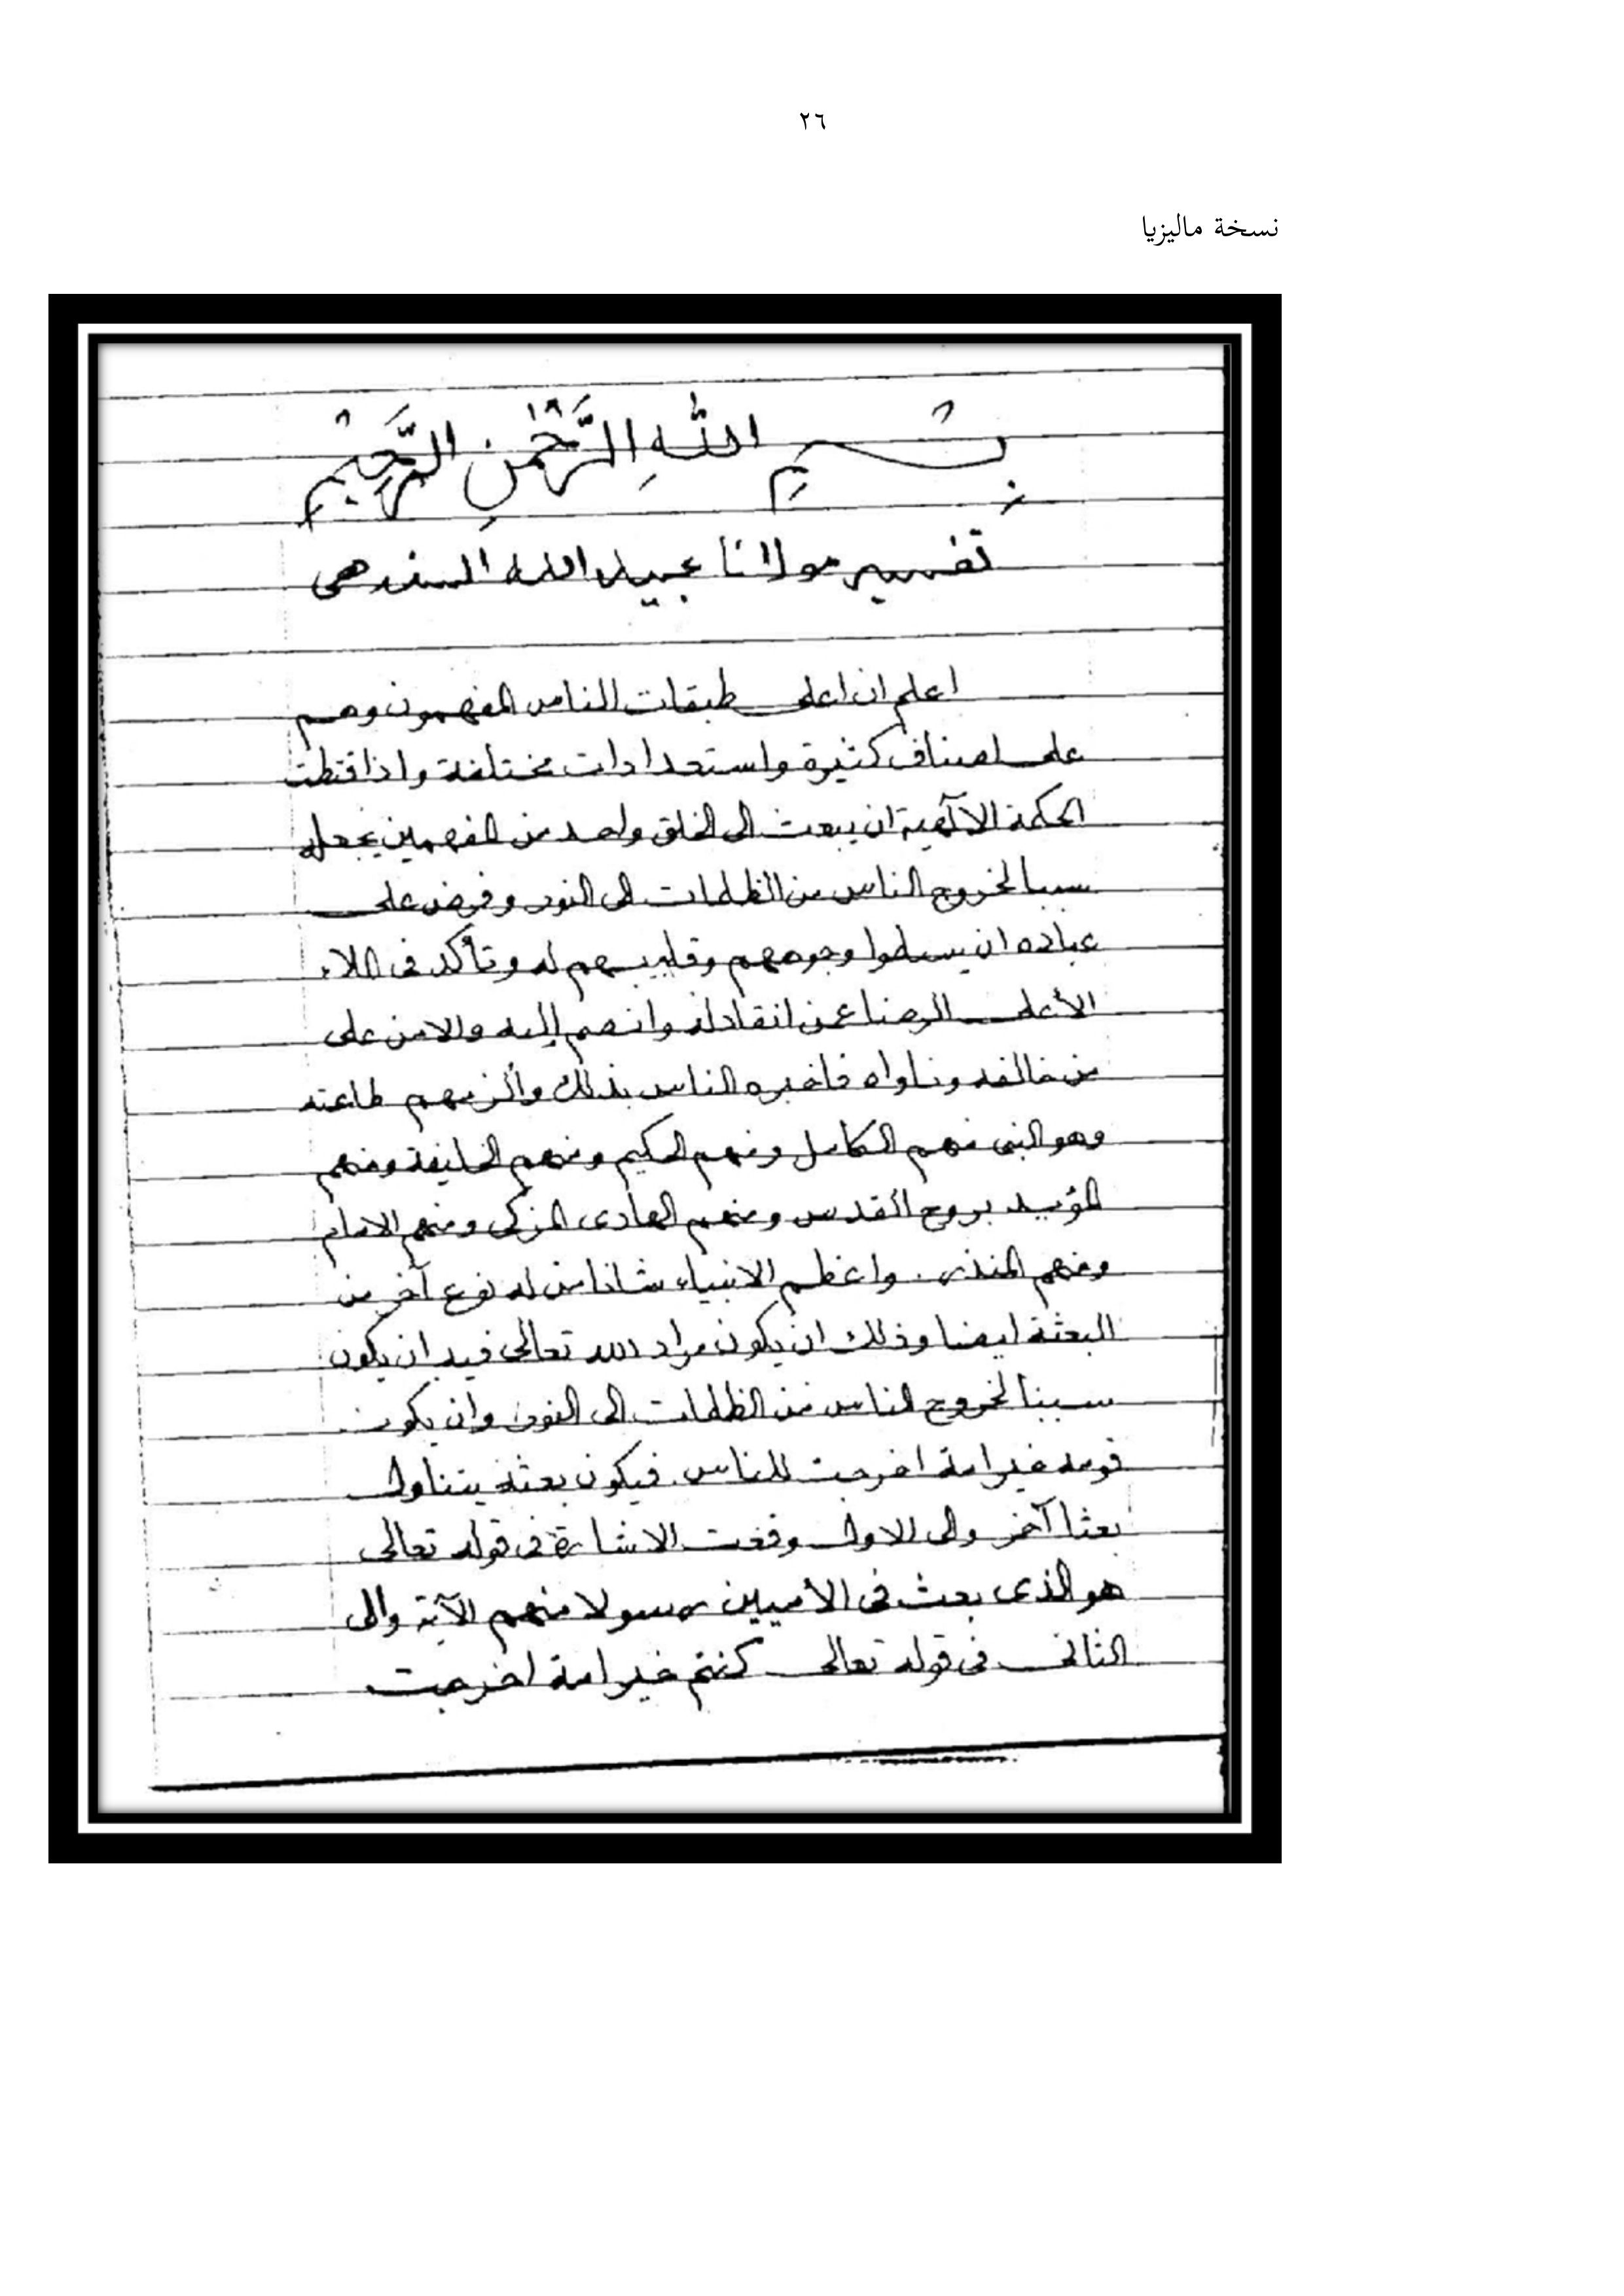 ٢٦
نسخة ماليزيا
بِسْمِ اللهِ الرَّحْمٰنِ الرَّحِيْمِ
تفسير مولانا عبيد الله السندهى
اعلم ان اعلى طبقات الناس المفهمون وهم
على اصناف كثيرة واستعدادات مختلفة واذا قتطت
الحكمة الآلهية ان يبعث الى الخلق واحد من المفهمين يجعله
سببا لخروج الناس من الظلمات الى النور وفرض على
عباده ان يسلموا وجوههم وقلوبهم له وتأكد فى الملاء
الأعلى الرضا عمن انقاد له وانضم إليه والامن على
من خالفه وناواه فاخبره الناس بذلك وألزمهم طاعته
وهو النبى منهم الكامل ومنهم الحكيم ومنهم الخليفة ومنهم
المؤيد بروح القدس ومنهم الهادى المزكى ومنهم الامام
ومنهم المنذر. واعظم الانبياء شانا من له نوع آخر من
البعثة ايضا وذلك ان يكون مراد الله تعالى فيه ان يكون
سببا لخروج الناس من الظلمات الى النور وان يكون
قومه خير امة اخرجت للناس. فيكون بعثه يتناول
بعثا آخر والى الاول وقعت الاشارة فى قوله تعالى
هو الذى بعث فى الأميين رسولا منهم الآية والى
الثانى فى قوله تعالى كنتم خير امة اخرجت